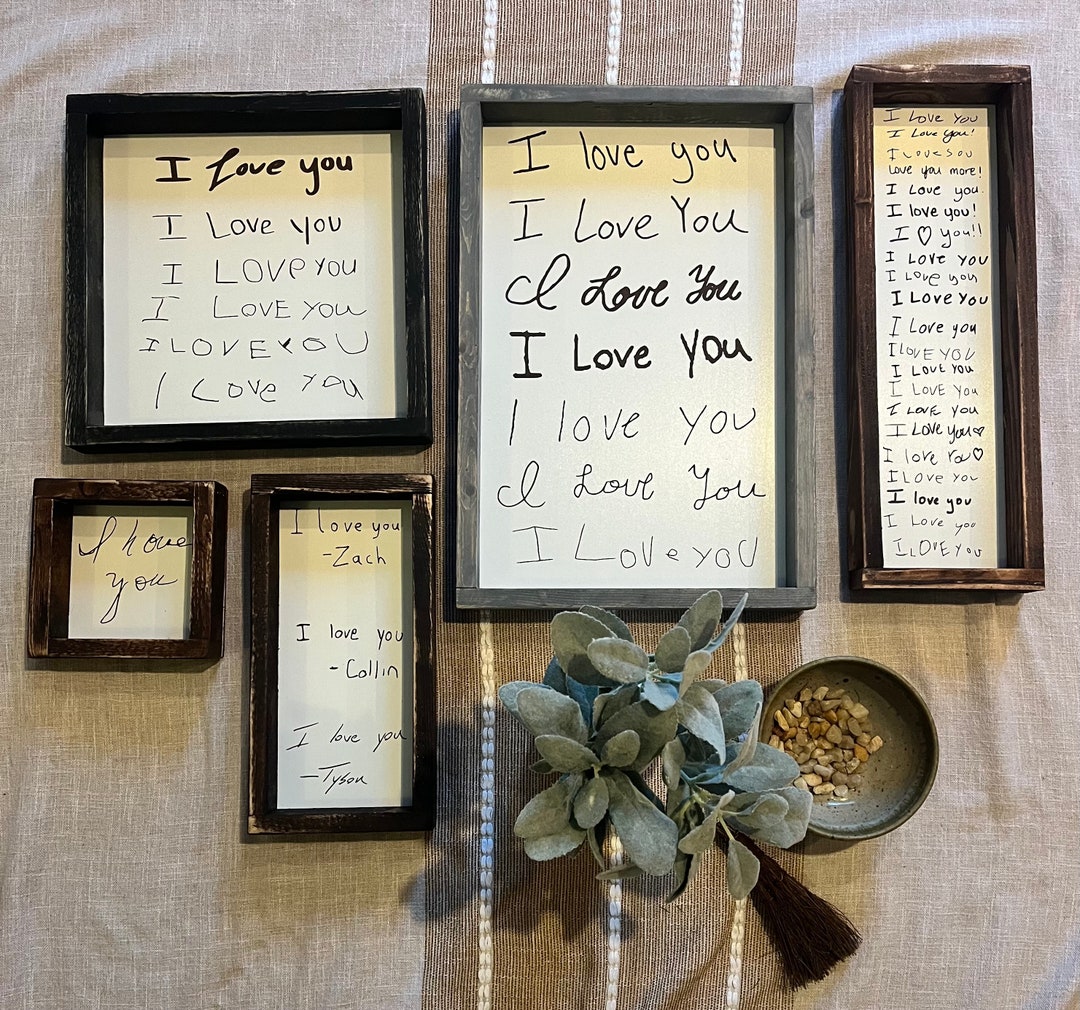 I Love you
I Love you
I LOVe you
I LOVE you
I LOVE YOU
I Love you
I love you
I Love You
I Love You
I Love You
I love you
I Love You
I Love you
I Love you
I Love you!
I Love you
Love you more!
I Love you.
I love you!
I ♡ you!!
I Love you
I Love you
I Love you
I Love you
I LOVE YOU
I Love you
I Love you
I Love you
I Love you♡
I love You♡
I Love you
I love you
I Love you
I LOVE you
I love
you
I love you
-Zach
I love you
-Collin
I love you
-Tyson